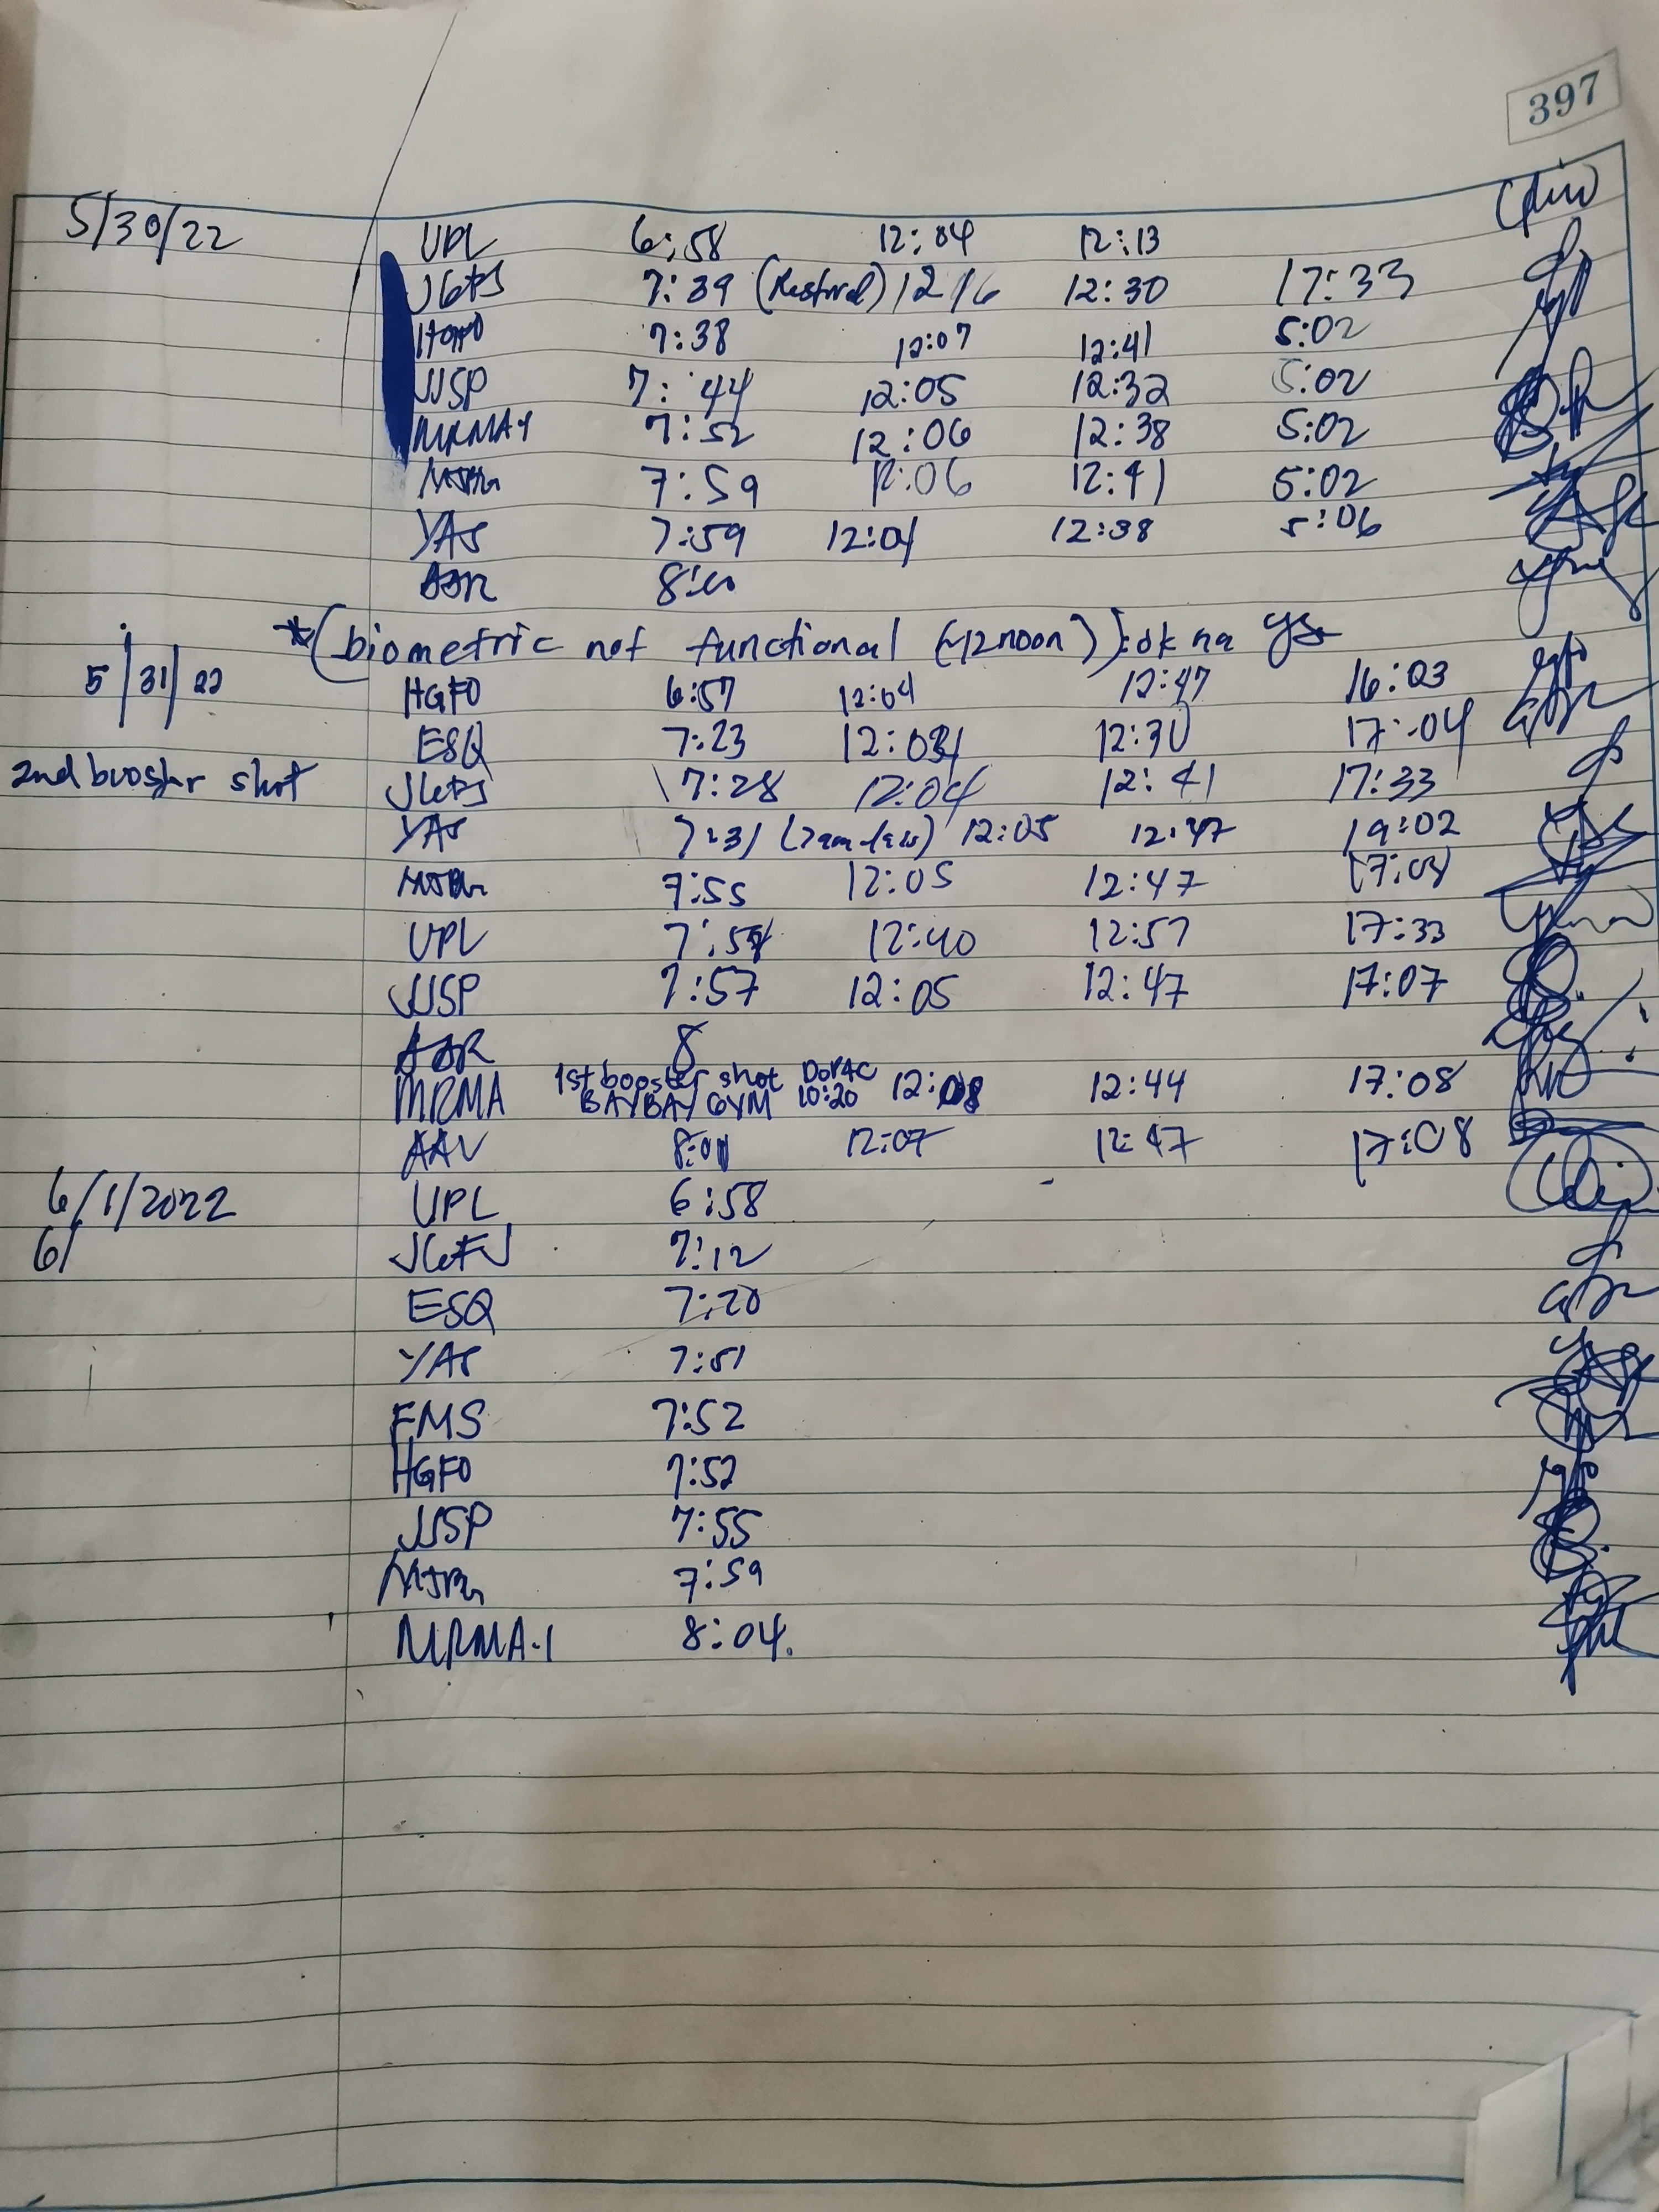 397
5/30/22 UPL 6:58 12:04 12:13
7:39 12 16 12:30 17:33
7:38 12:07 12:41 5:02
JJSP 7:44 12:05 12:32 5:02
MRMA-1 7:52 12:06 12:38 5:02
7:59 12:06 12:41 5:02
YAS 7:59 12:04 12:38 5:06
8:00
*(biometric not functional (~12noon)):ok na ys
5/31/22 HGFO 6:57 12:04 12:47 16:03
ESQ 7:23 12:30 17:04
2nd booster shot 7:28 12:04 12:41 17:33
YAS 7:31 12:05 12:47 19:02
7:55 12:05 12:47 17:04
UPL 12:40 12:57 17:33
JJSP 7:57 12:05 12:47 17:07
8
MRMA 1st booster shot 12:08 12:44 17:08
BAYBAY GYM 10:20
AAV 12:07 12:47 17:08
6/1/2022 UPL 6:58
6/ 7:12
ESQ 7:20
YAS 7:51
FMS 7:52
HGFO 7:52
JJSP 7:55
7:59
MRMA-1 8:04.